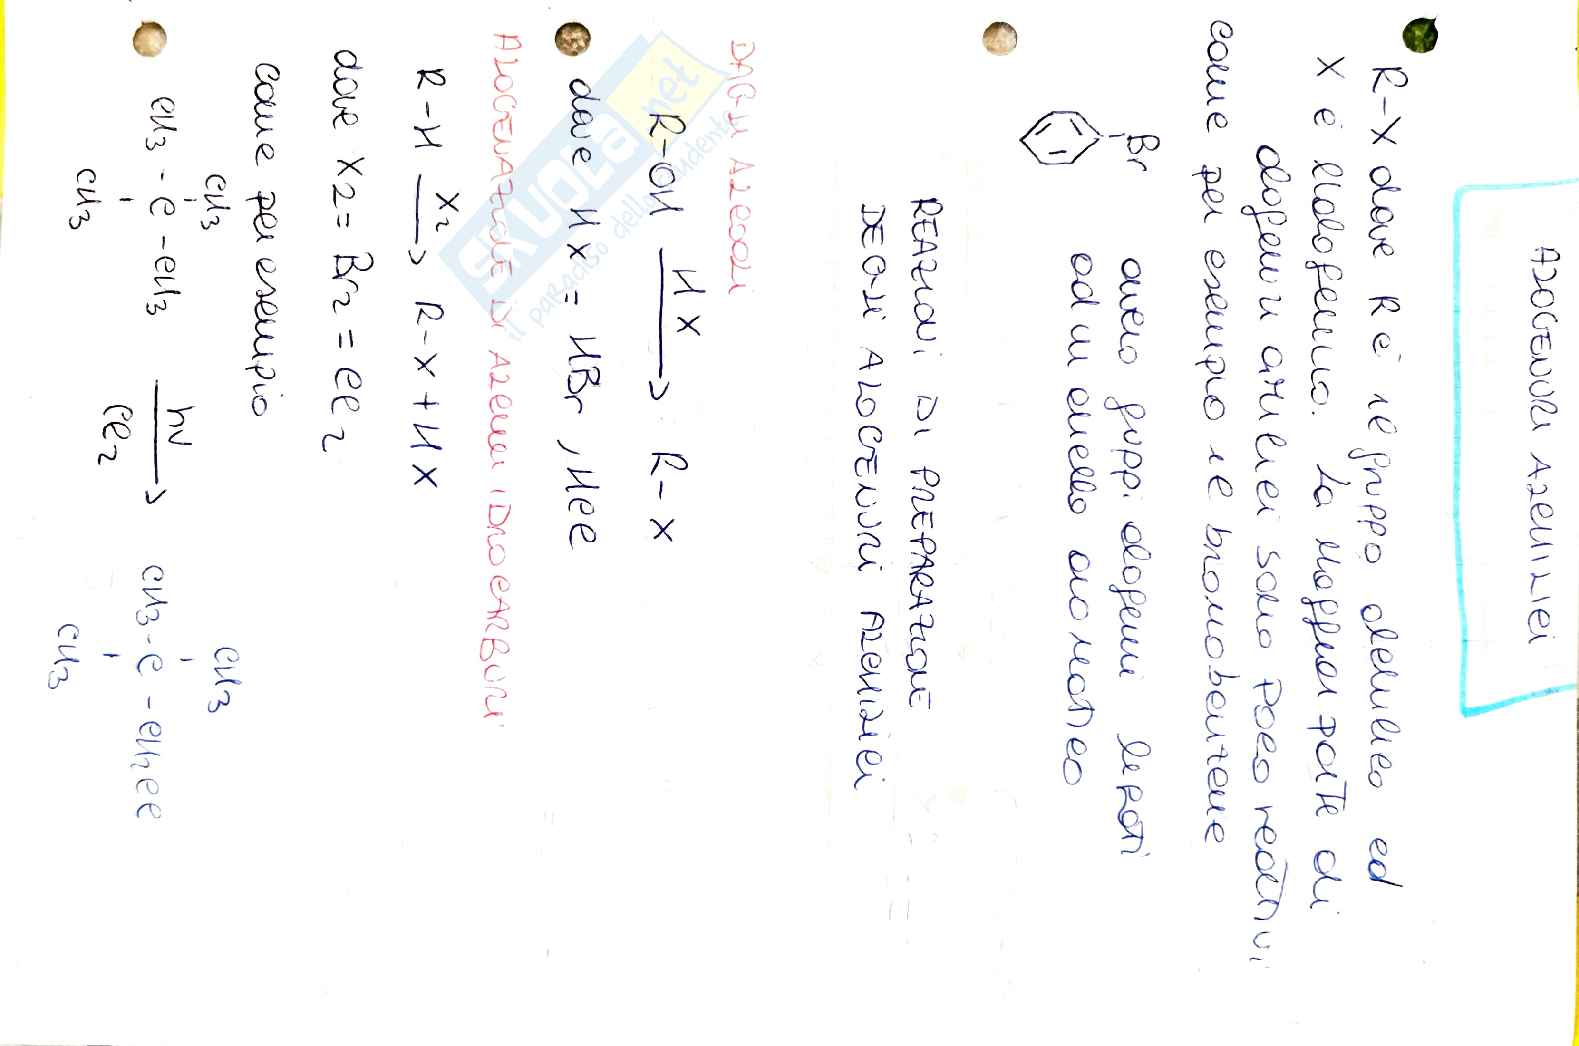 ALOGENURI ALCHILICI
R-X dove R è il gruppo alchilico ed
X è l'alogeno. La maggior parte di
alogenuri arilici sono poco reattivi
come per esempio il bromobenzene
Br
ovvero gruppi alogeni legati
ad un anello aromatico
REAZIONI DI PREPARAZIONE
DEGLI ALOGENURI ALCHILICI
DAGLI ALCOOLI
R-OH HX R-X
dove HX = HBr, HCl
ALOGENAZIONE DI ALCHIL IDROCARBURI
R-H X2 R-X + HX
dove X2 = Br2 = Cl2
come per esempio
CH3
CH3 - C - CH3
CH3
hν
Cl2
CH3
CH3 - C - CH2Cl
CH3
SKUOLA.net
il paradiso dello studente